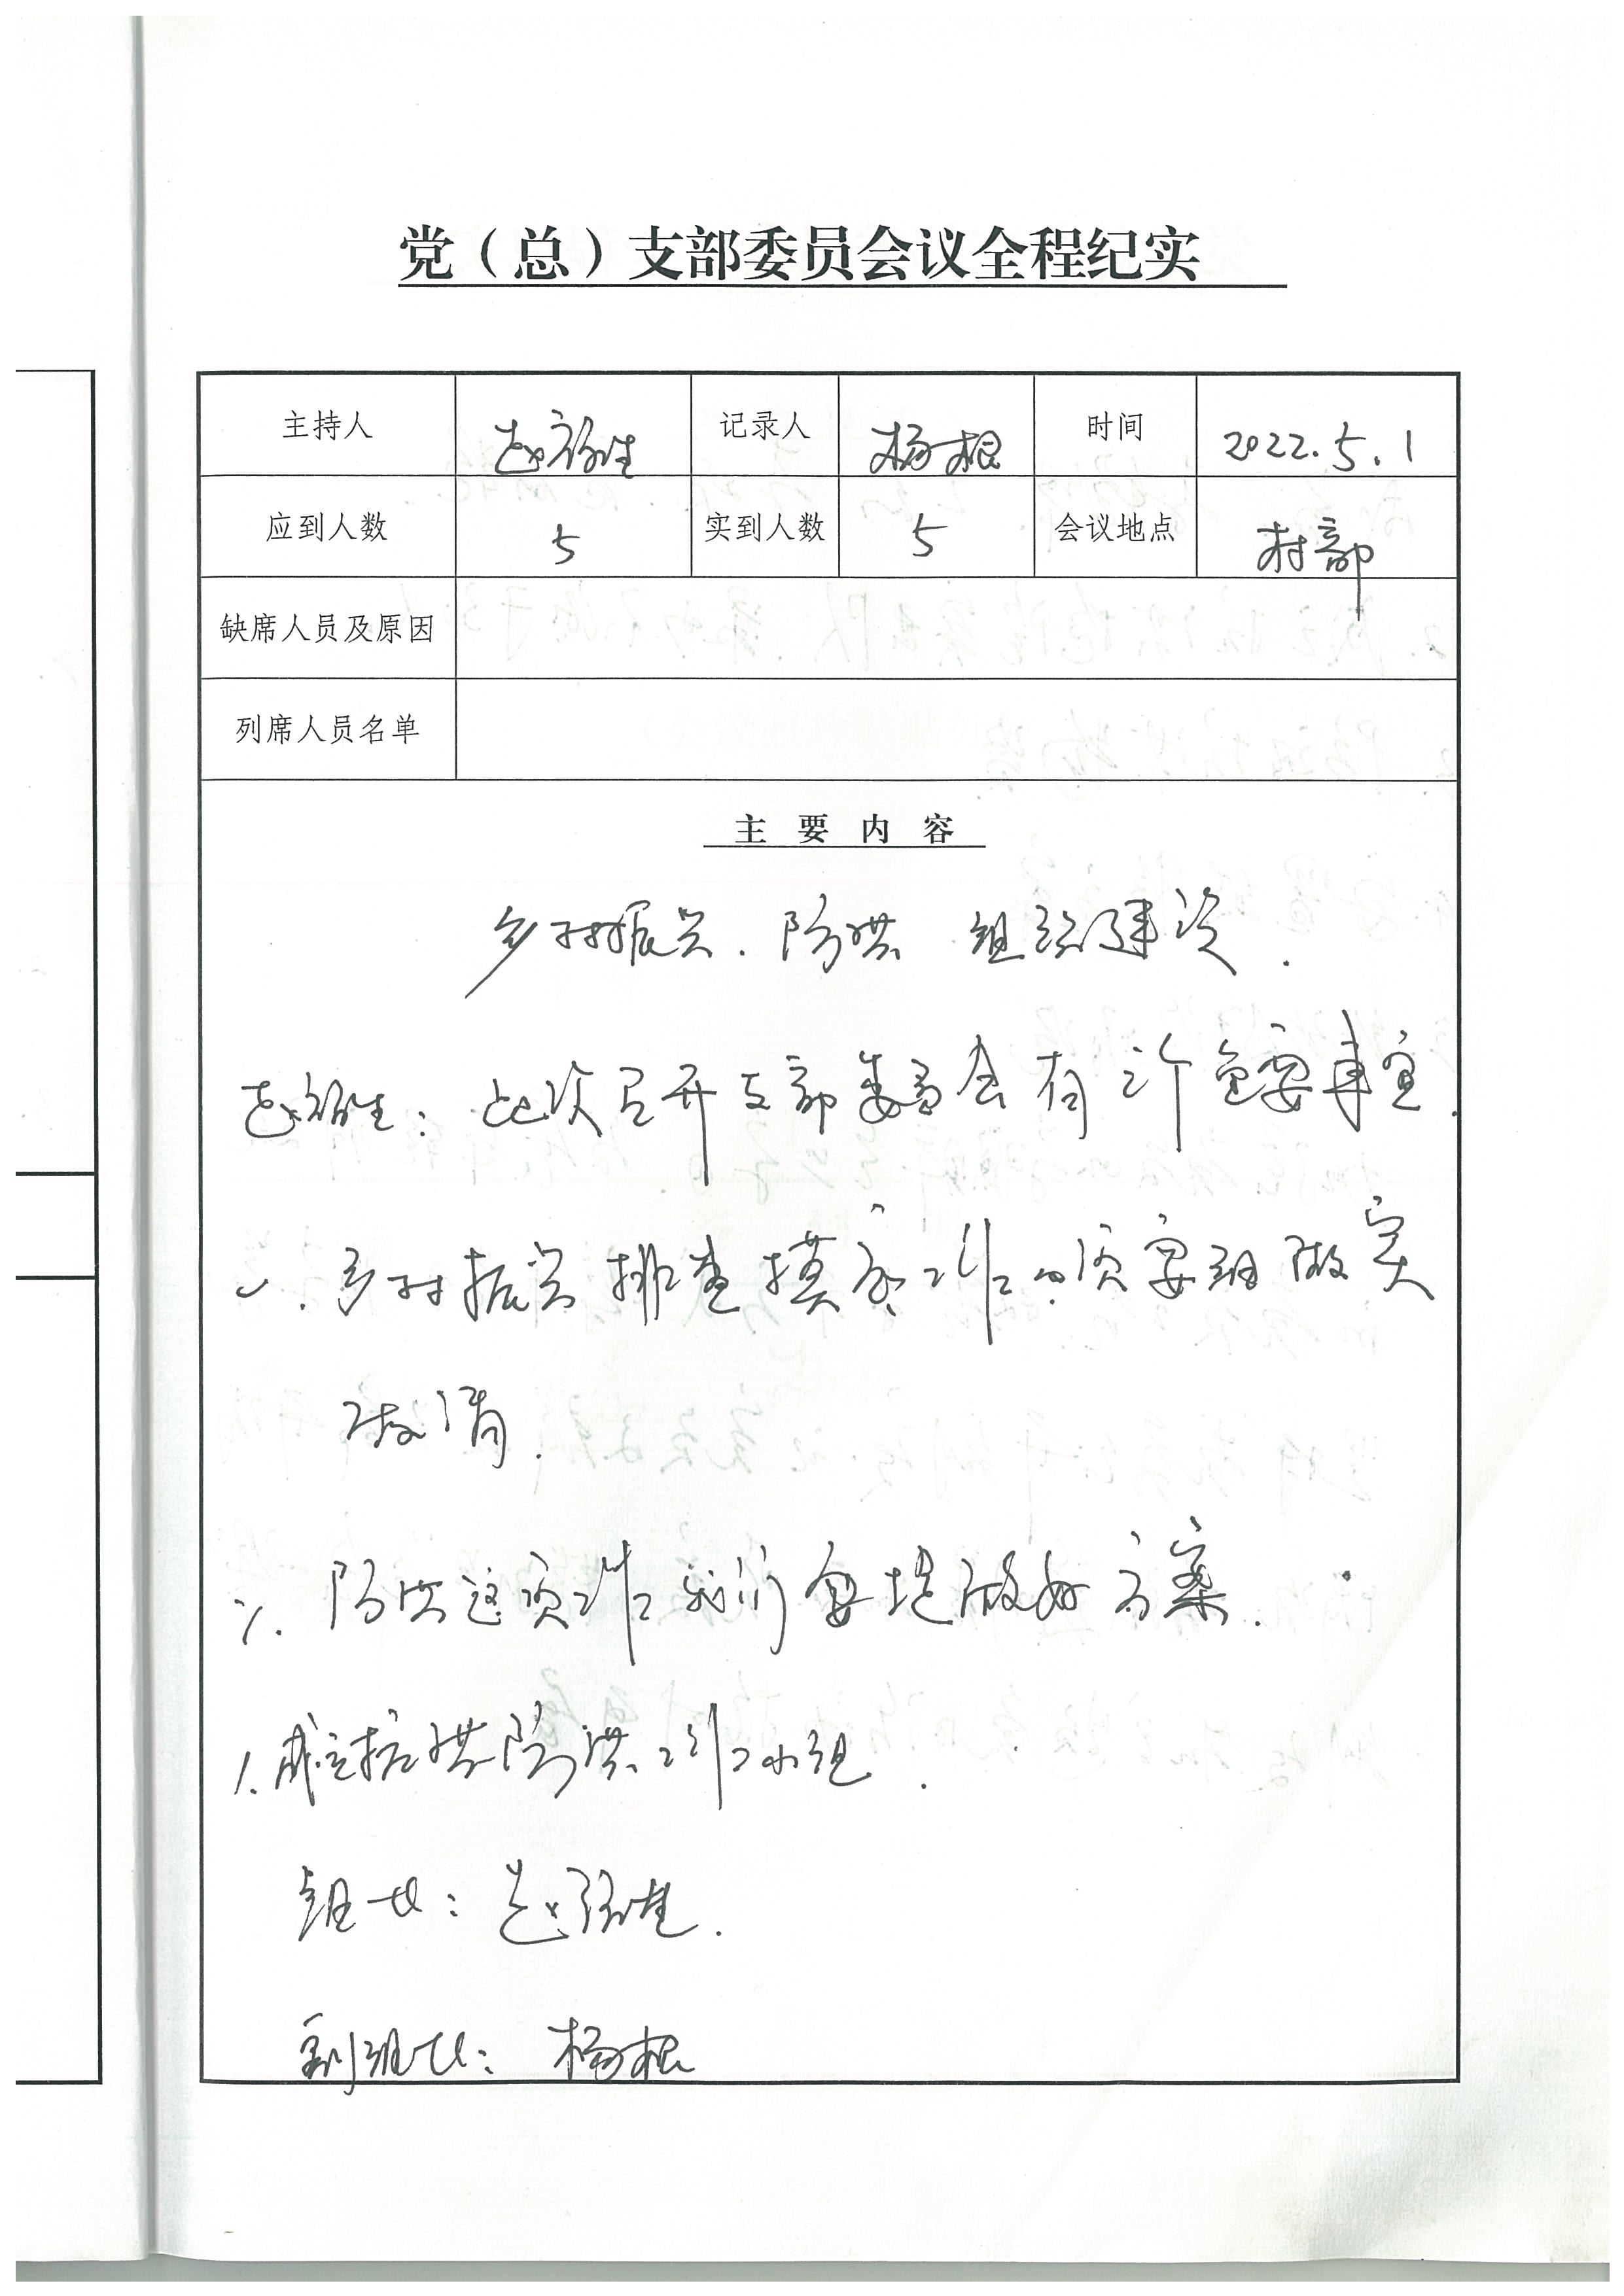 党（总）支部委员会议全程纪实
主持人 赵裕生 记录人 杨根 时间 2022.5.1
应到人数 5 实到人数 5 会议地点 村部
缺席人员及原因
列席人员名单
主要内容
乡村振兴.防洪 组织建设.
赵裕生：此次召开支部委员会有 许 重要事宜.
一.乡村振兴排查摸底工作.须要组做实
做清.
二.防洪这项工作我们要提做好方案.
1.成立抗洪防洪工作小组.
组长：赵裕生.
副组长：杨根